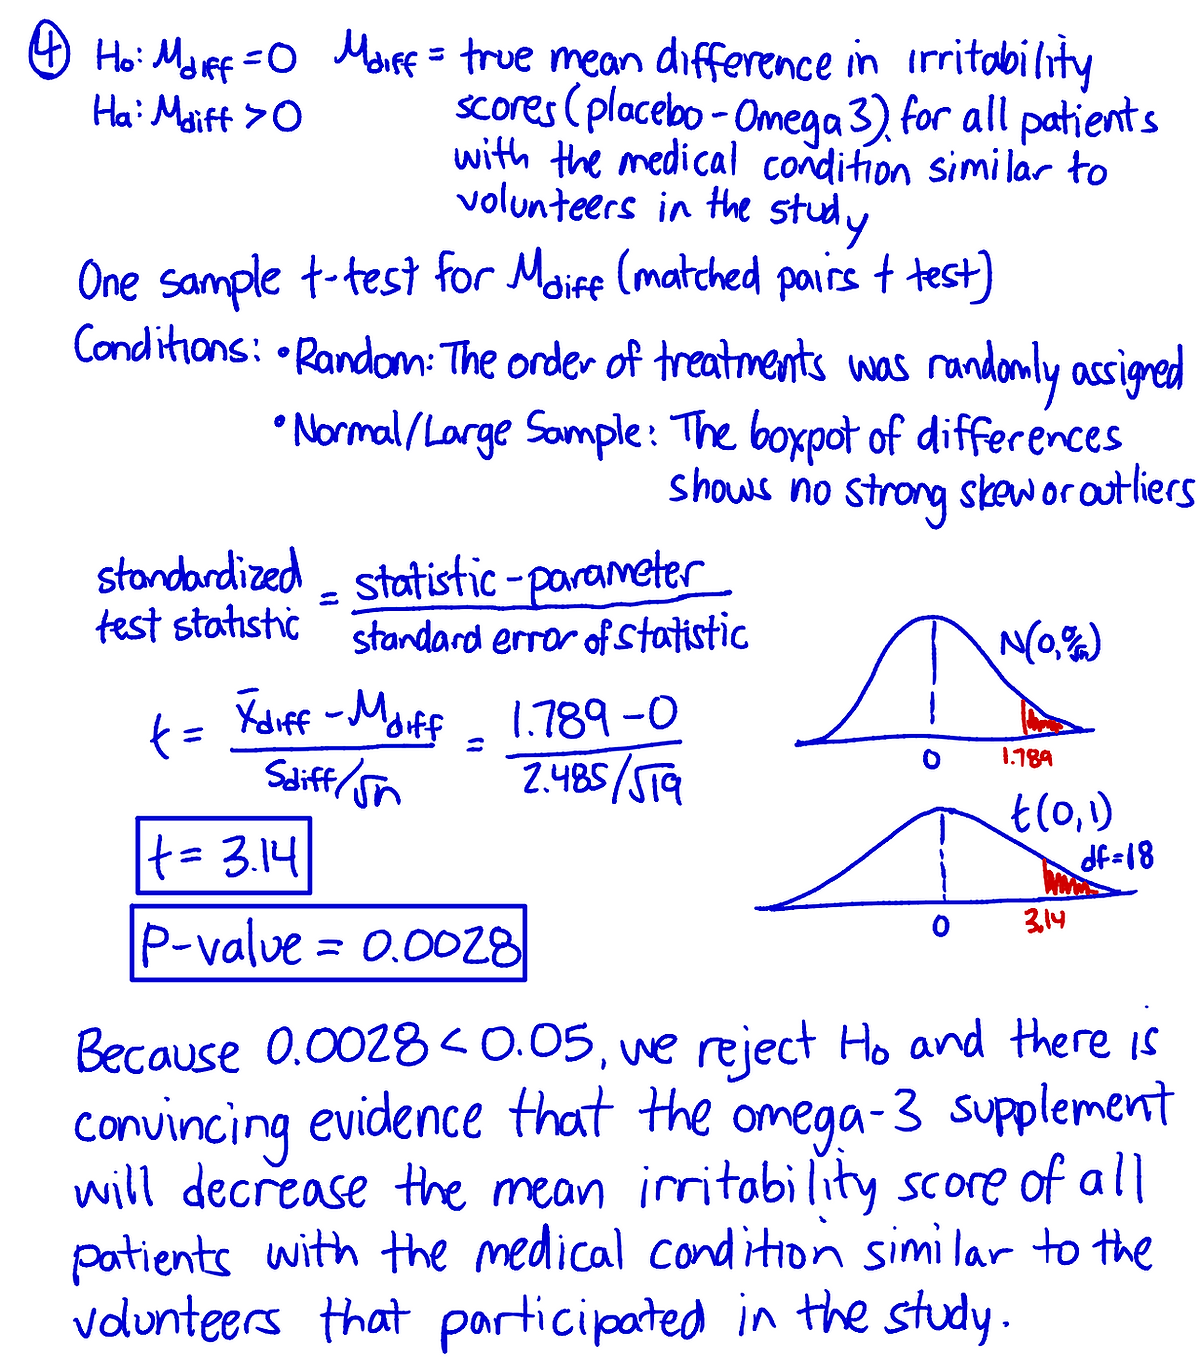 ④ H₀: μdiff = 0   μdiff = true mean difference in irritability
Ha: μdiff > 0   scores (placebo - Omega 3) for all patients
with the medical condition similar to
volunteers in the study
One sample t-test for μdiff (matched pairs t test)
Conditions: • Random: The order of treatments was randomly assigned
• Normal/Large Sample: The boxpot of differences
shows no strong skew or outliers
standardized test statistic = statistic - parameter / standard error of statistic
N(0, σ/√n)
t = (x̄diff - μdiff) / (Sdiff/√n) = (1.789 - 0) / (2.485/√19)
0   1.789
t = 3.14
t(0,1)
df = 18
0   3.14
P-value = 0.0028
Because 0.0028 < 0.05, we reject H₀ and there is
convincing evidence that the omega-3 supplement
will decrease the mean irritability score of all
patients with the medical condition similar to the
volunteers that participated in the study.